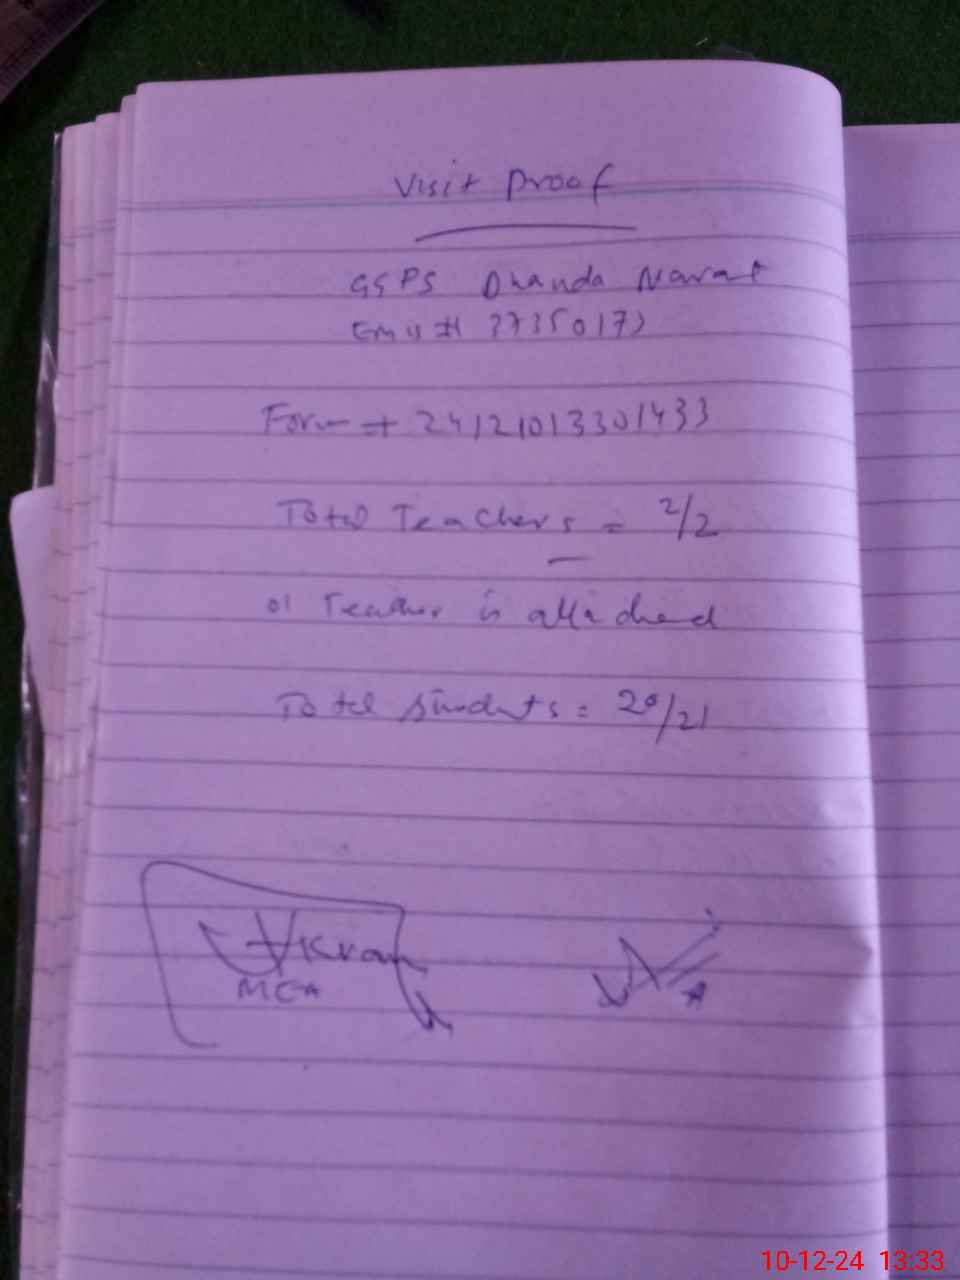 Visit Proof
GSPS Dhanda Narat
Emis # 37350173
Form # 24121013301433
Total Teachers = 2/2
01 Teacher is attached
Total Students = 20/21
Ikram
MEA
10-12-24 13:33